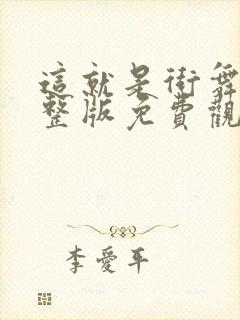 這就是街舞
整版免費觀
李愛平